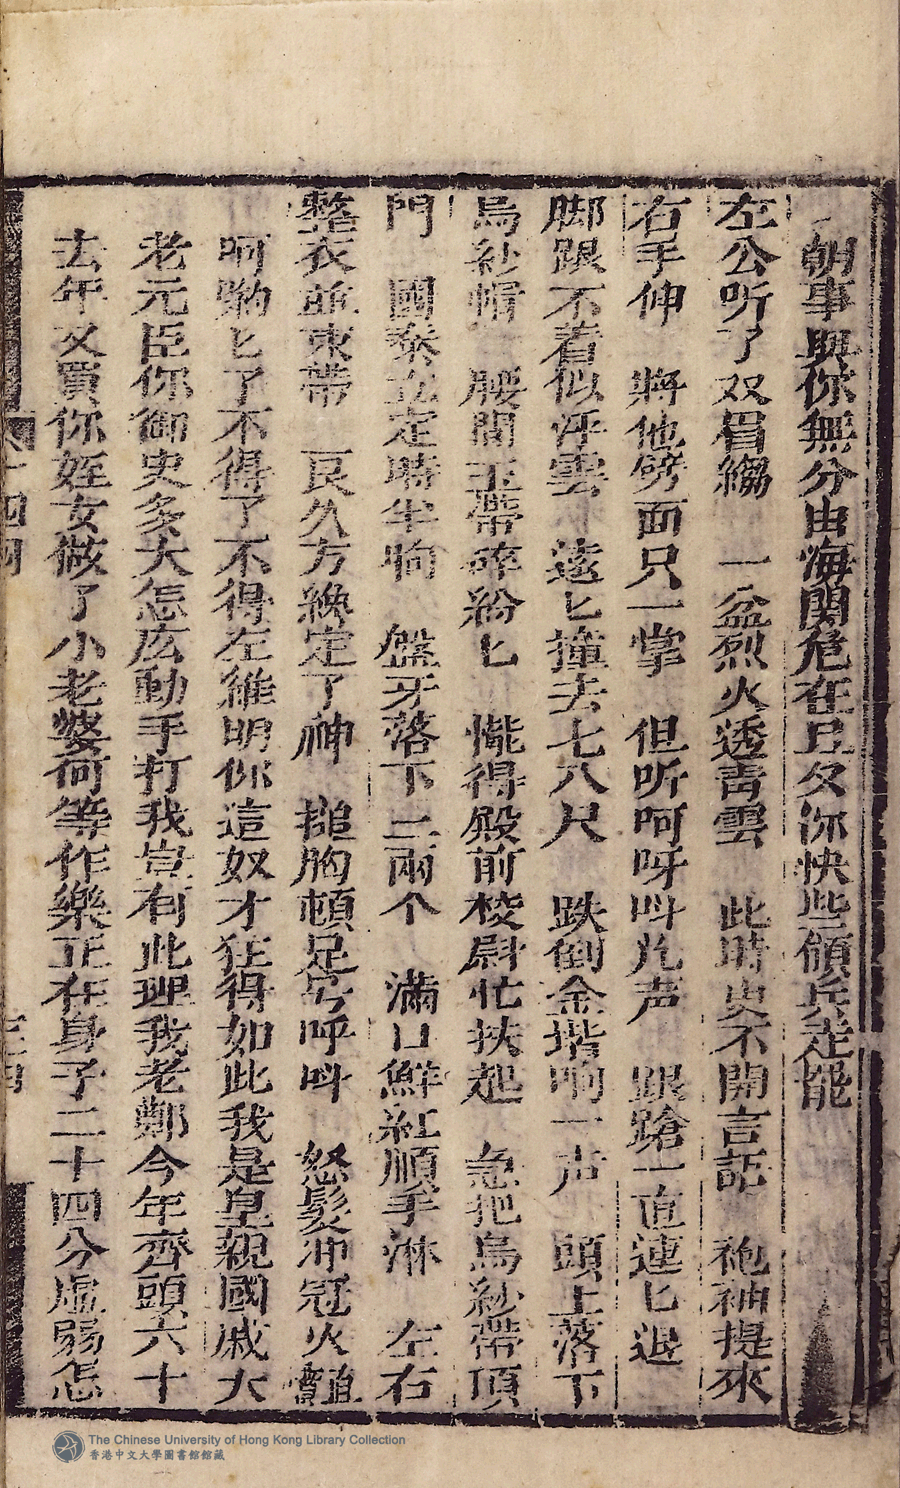 朝事與你無分由海関危在旦夕你快些領兵走罷
左公听了双眉縐　一盆烈火透青雲　此時史不開言話　袍袖提來
右手伸　將他劈面只一掌　但听呵呀呌几声　踉蹌一直連匕退
脚跟不着似浮雲　遠匕撞去七八尺　跌倒金堦响一声　頭上落下
烏紗帽　腰間玉帶碎紛匕　慌得殿前校尉忙扶起　急把烏紗帶頂
門　國泰立定時半晌　盤牙落下二兩个　滿口鮮紅順手淋　左右
整衣並束帶　良久方纔定了神　搥胸頓足号呼呌　怒髮冲冠火
呵喲匕了不得了不得左維明你這奴才狂得如此我是皇親國戚大
老元臣你御史多大怎庅動手打我豈有此理我老鄭今年齊頭六十
去年又買你姪女做了小老婆何等作樂正在身子二十四分虛弱怎
十四囘
The Chinese University of Hong Kong Library Collection
香港中文大學圖書館館藏